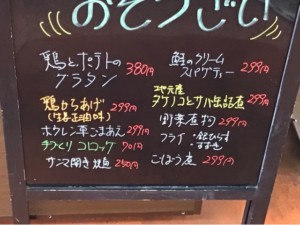 おそうざい
鶏とポテトの
グラタン 380円
鶏からあげ 299円
(生姜正油味)
ホウレン草ごまあえ 299円
手づくりコロッケ 90円
サンマ開き 焼 250円
鮭のクリーム
スパゲティー 299円
地元産
タケノコとサバ缶詰煮 299円
野菜煮物 299円
フライ・銀ひらす
ごぼう煮 299円